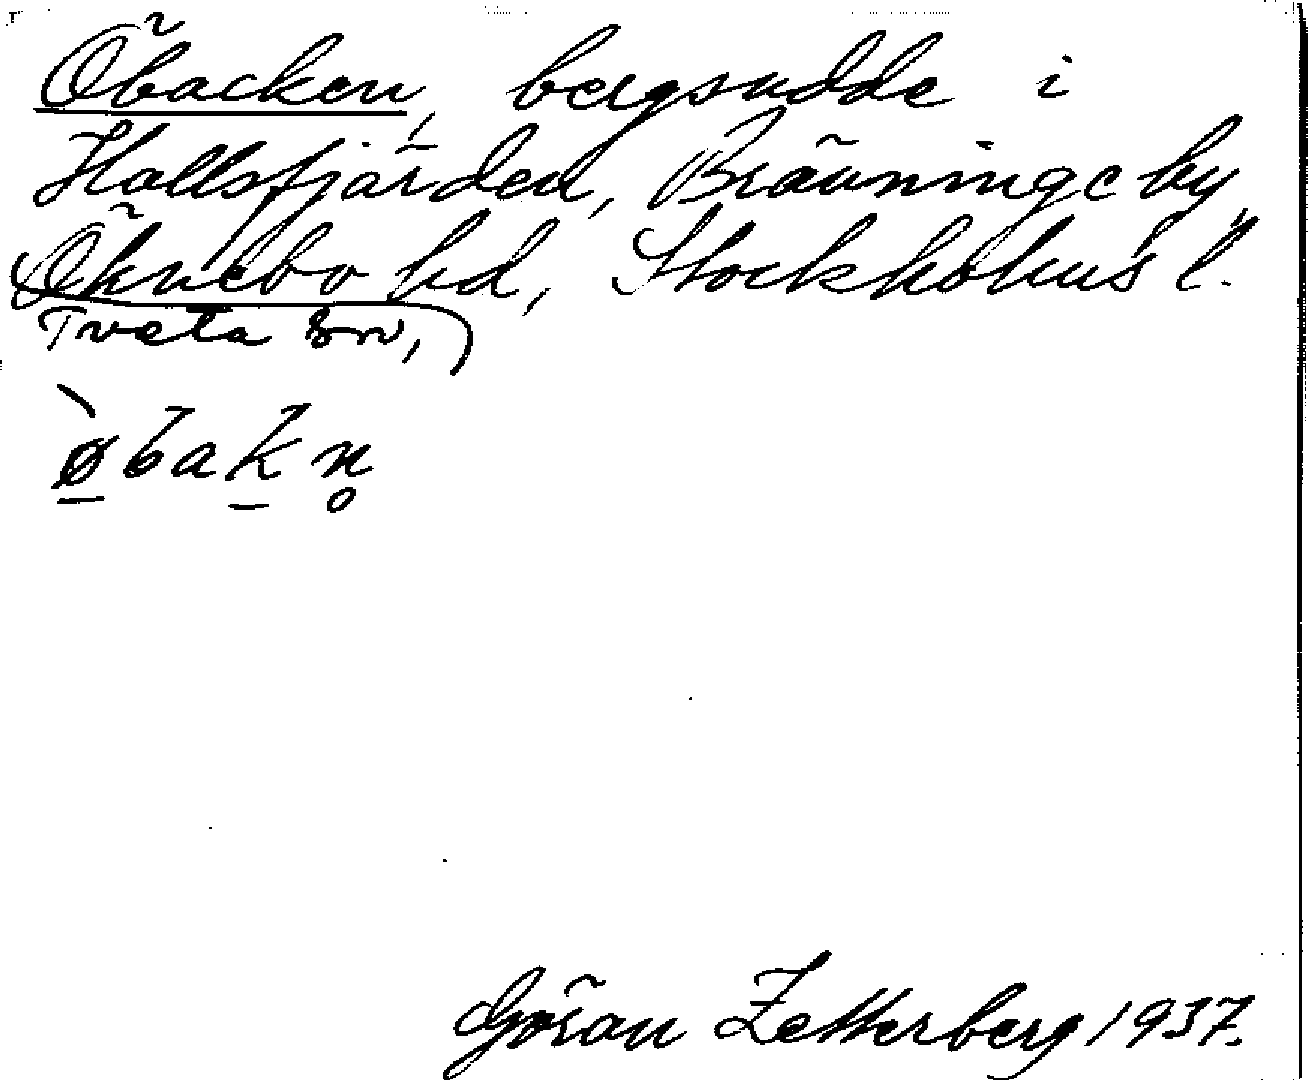 Öbacken, bergsudde i
Hallsfjärden, Bränninge by,
Öknebo hd, Stockholms l.
Tveta sn,
ø̀bakn̥
Göran Zetterberg 1937.